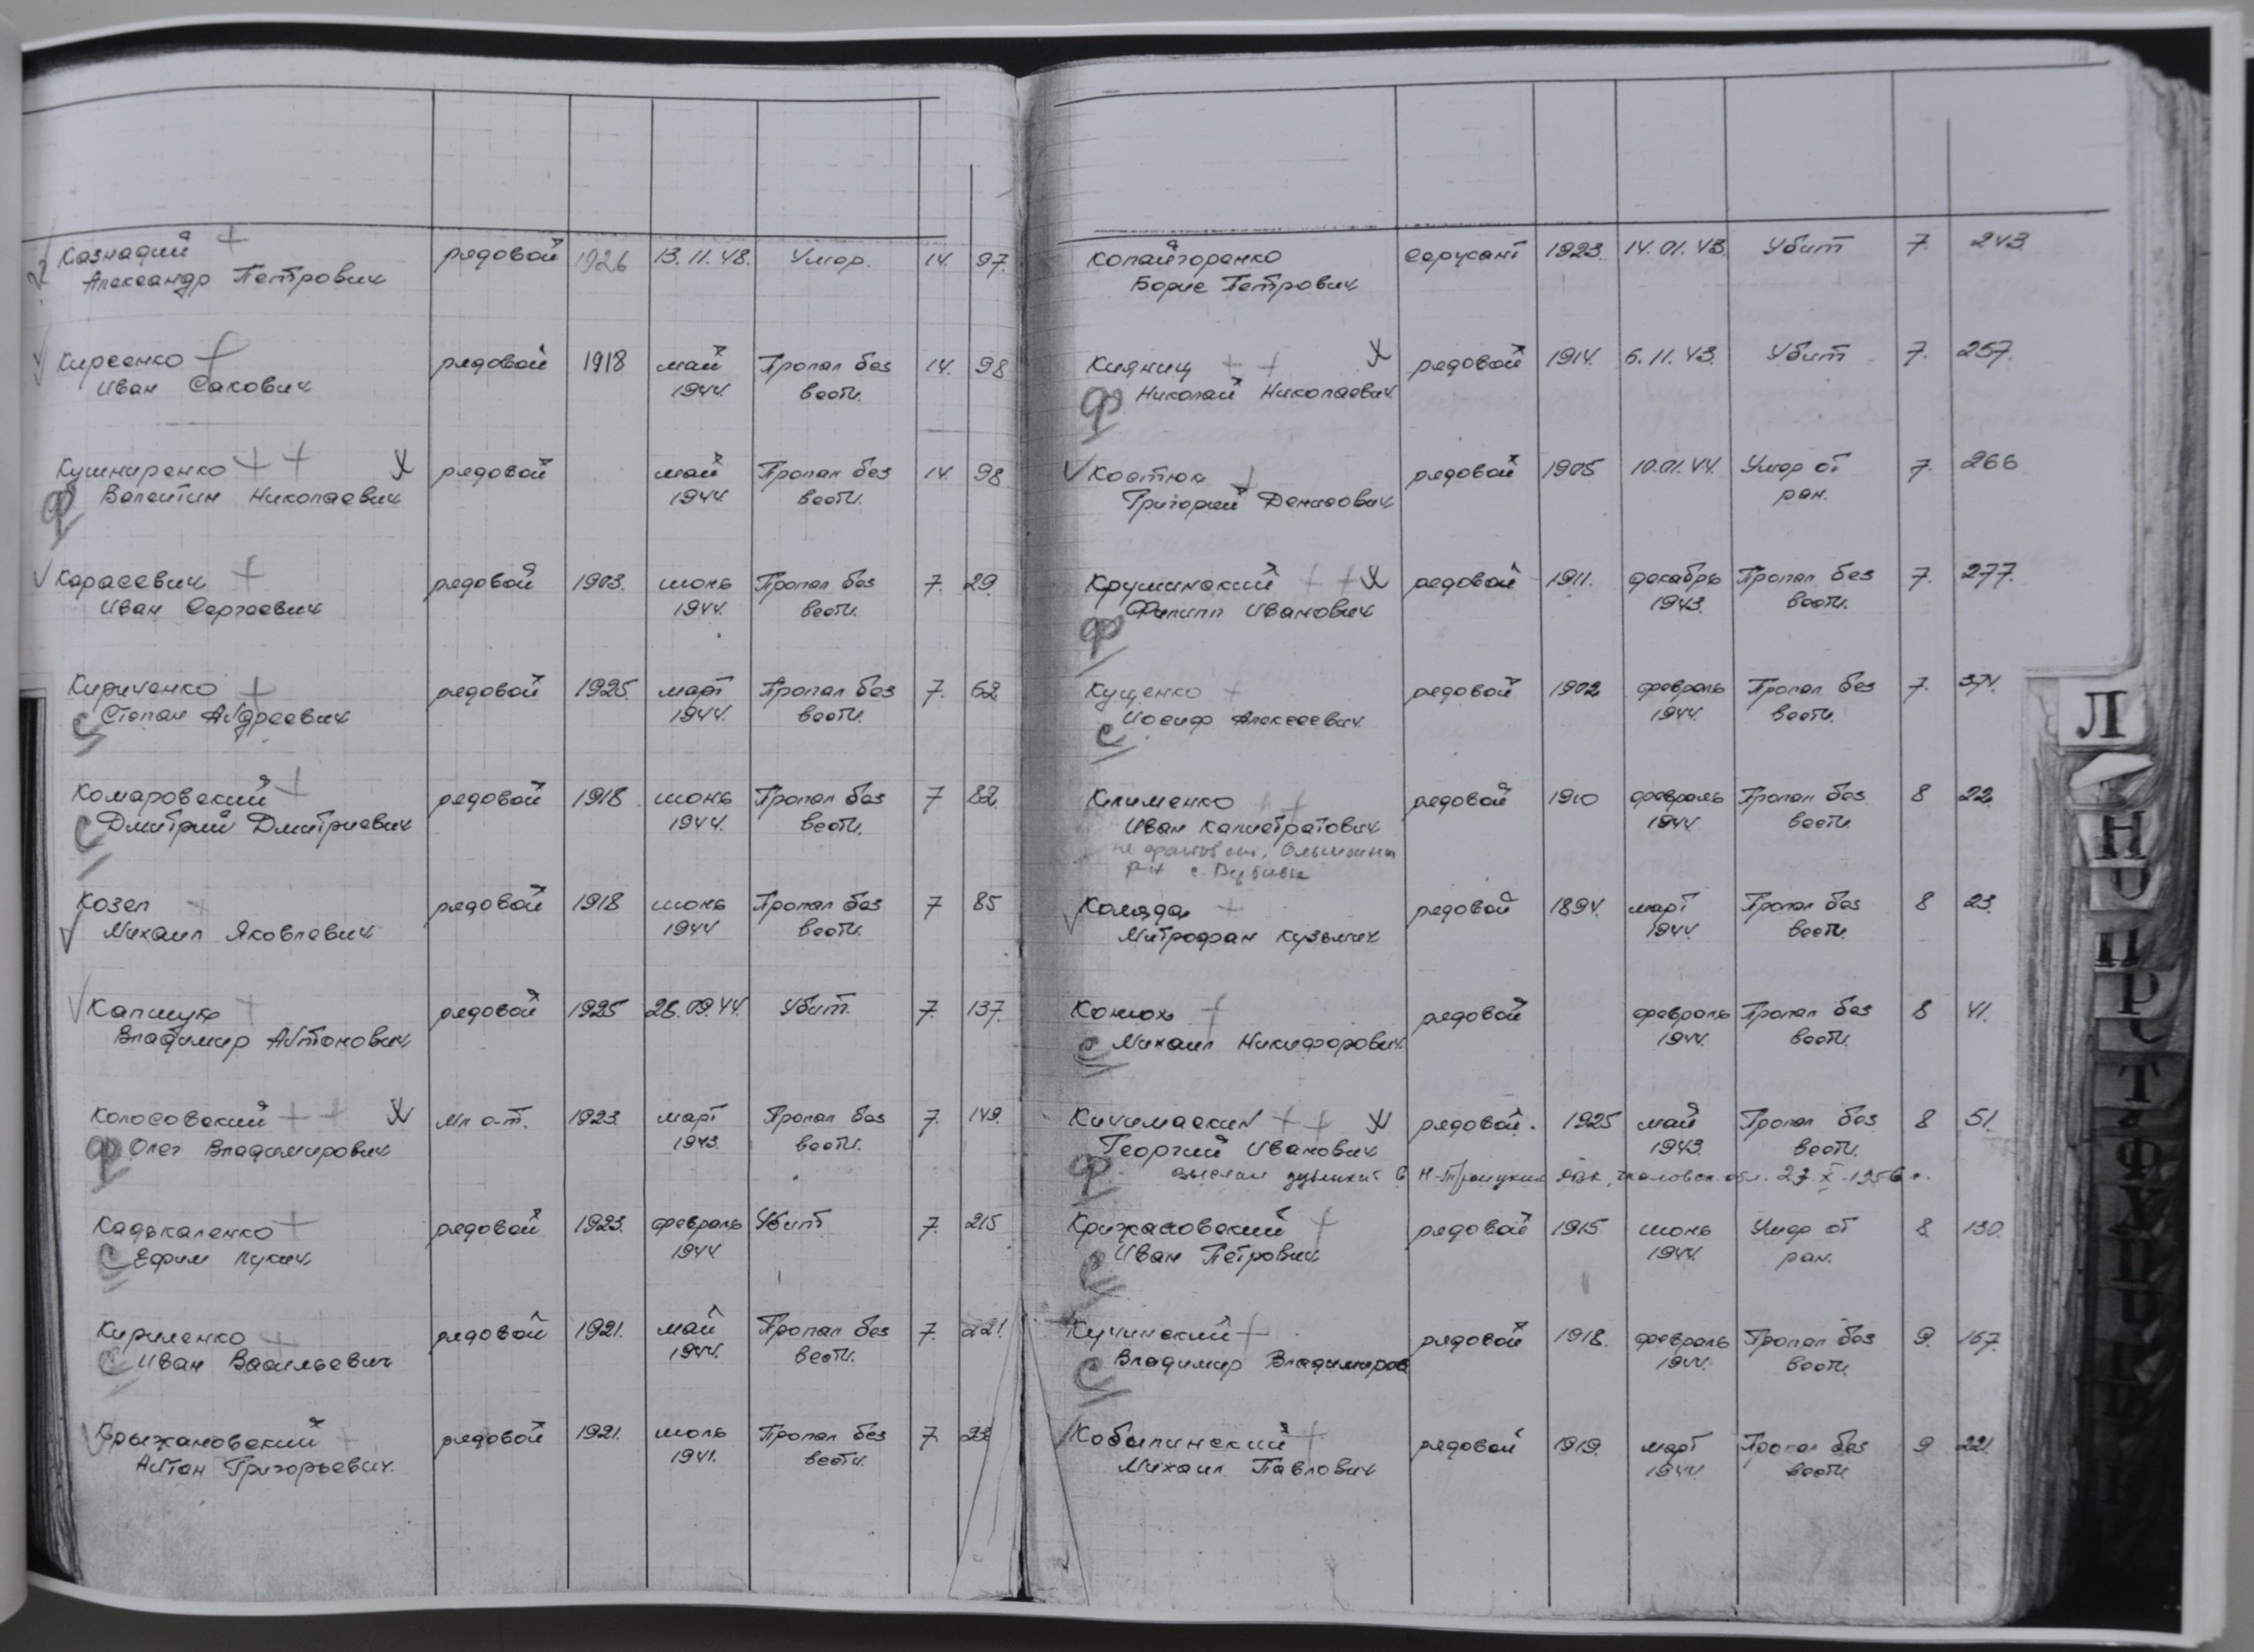 Казнадий рядовой 1926 13.11.48. Умер. 14. 97.
Александр Петрович
Кирсенко рядовой 1918 май Пропал без 14. 98
Иван Сакович 1944. вести.
Кушниренко рядовой май Пропал без 14. 98
ф Валентин Николаевич 1944. вести.
Карасевич рядовой 1903. июнь Пропал без 7. 29.
Иван Сергеевич 1944. вести.
Кириченко рядовой 1925. март Пропал без 7. 62
с Степан Андреевич 1944. вести.
Комаровский рядовой 1918 июнь Пропал без 7 82.
с Дмитрий Дмитриевич 1944. вести.
Козел рядовой 1918 июнь Пропал без 7 85
Михаил Яковлевич 1944 вести.
Капшук рядовой 1925 26.09.44. Убит. 7. 137.
Владимир Антонович
Колосовский мл с-т. 1923. март Пропал без 7. 149.
ф Олег Владимирович 1943. вести.
Кадькаленко рядовой 1923. февраль Убит 7. 215
с Ефим Лукич 1944
Кириленко рядовой 1921. май Пропал без 7. 221.
с Иван Васильевич 1944. вести.
Крыжановский рядовой 1921. июль Пропал без 7.
Антон Григорьевич. 1941. вести.
Копайгоренко сержант 1923. 14.01.43. Убит 7. 243.
Борис Петрович
Кияниц рядовой 1914. 6.11.43. Убит 7. 257.
ф Николай Николаевич
Костюк рядовой 1905 10.01.44. Умер от 7. 266
Григорий Денисович ран.
Крушинский рядовой 1911. декабрь Пропал без 7. 277.
ф Филипп Иванович 1943. вести.
Кущенко рядовой 1902 февраль Пропал без 7. 371.
с Иосиф Алексеевич. 1944. вести.
Клименко рядовой 1910 февраль Пропал без 8 22.
Иван Калистратович 1944 вести.
р-н с.
Коляда рядовой 1894. март Пропал без 8 23.
Митрофан Кузьмич 1944. вести.
Конюх рядовой февраль Пропал без 8 41.
с Михаил Никифорович 1944. вести.
Кичимаскин рядовой. 1925 май Пропал без 8 51.
ф Георгий Иванович 1943. вести.
выслан в Н-Троицкий РВК, Чкаловск. обл. 27.X.1956 г.
Крижановский рядовой 1915 июнь Умер от 8 130.
с Иван Петрович 1944. ран.
Кучинский рядовой 1918. февраль Пропал без 9. 167.
с Владимир Владимиров 1944. вести.
Кобылинский рядовой 1919. март Пропал без 9 221.
Михаил Павлович 1944 вести.
Л
Н
О
П
Р
С
Т